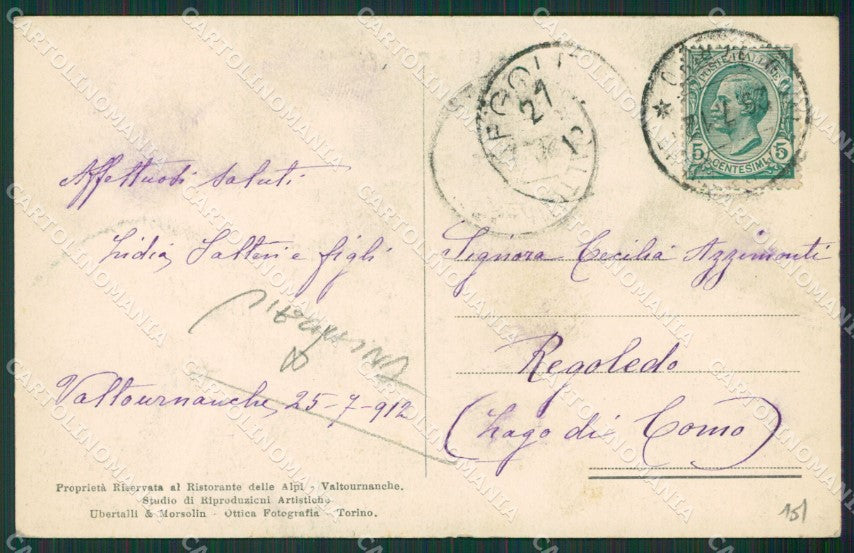 Affettuosi saluti
Lidia, Salteri e figli
Valtournanche, 25-7-912
Proprietà Riservata al Ristorante delle Alpi - Valtournanche.
Studio di Riproduzioni Artistiche
Ubertalli & Morsolin - Ottica Fotografia - Torino.
27
12
POSTE ITALIANE
5 5
CENTESIMI
Signora Cecilia Azzimonti
Regoledo
(Lago di Como)
15/
CARTOLINOMANIA